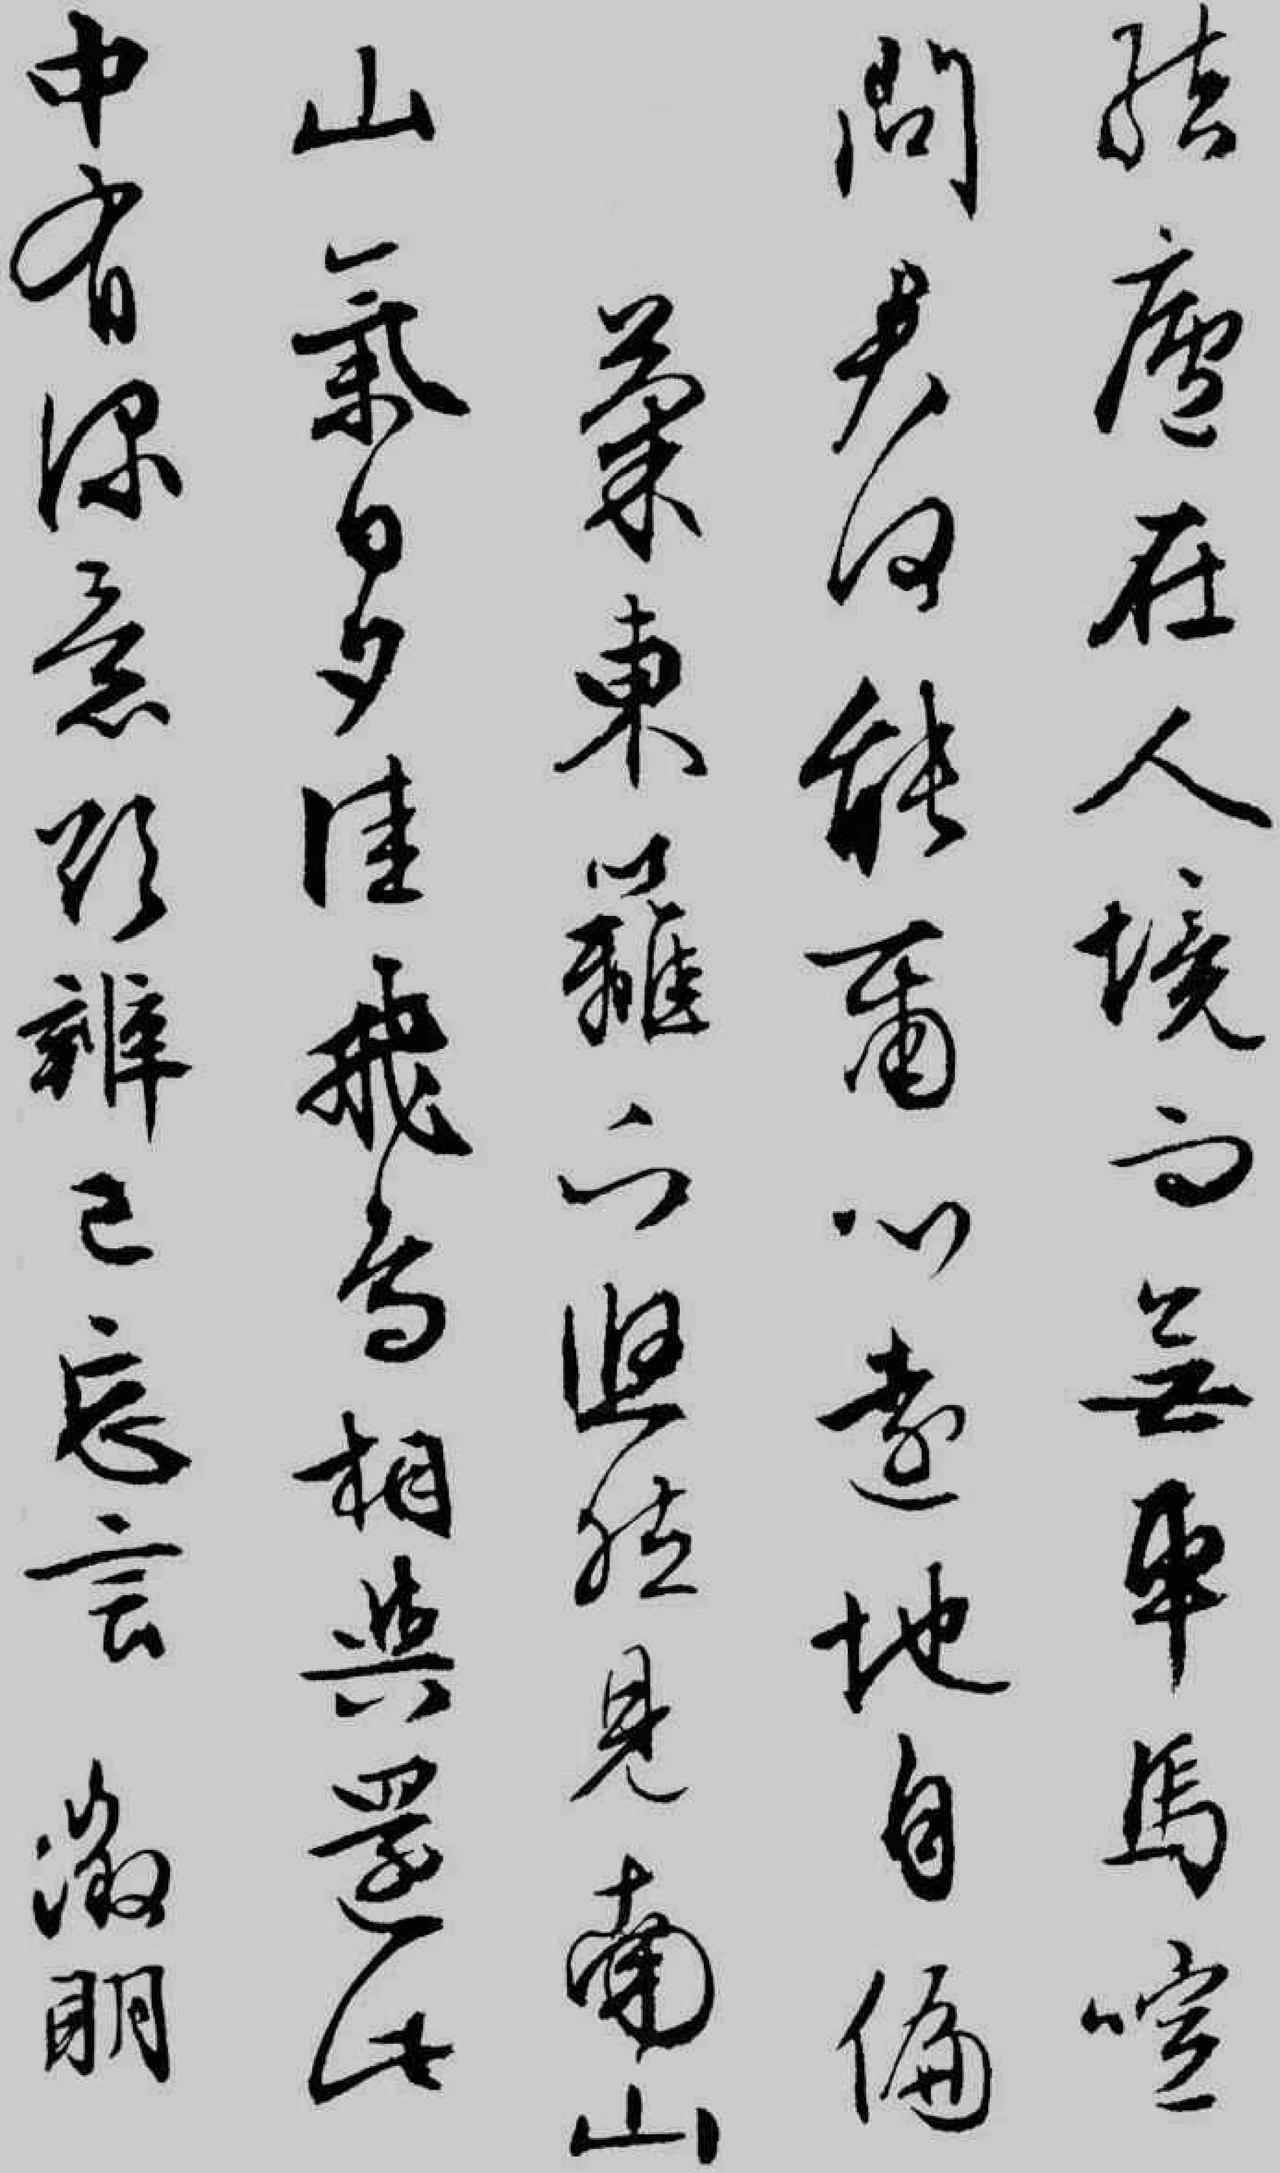 結廬在人境而無車馬喧
問君何能爾心遠地自偏
菊東籬下悠然見南山
山氣日夕佳飛鳥相與還此
中有深意欲辨已忘言 徵明